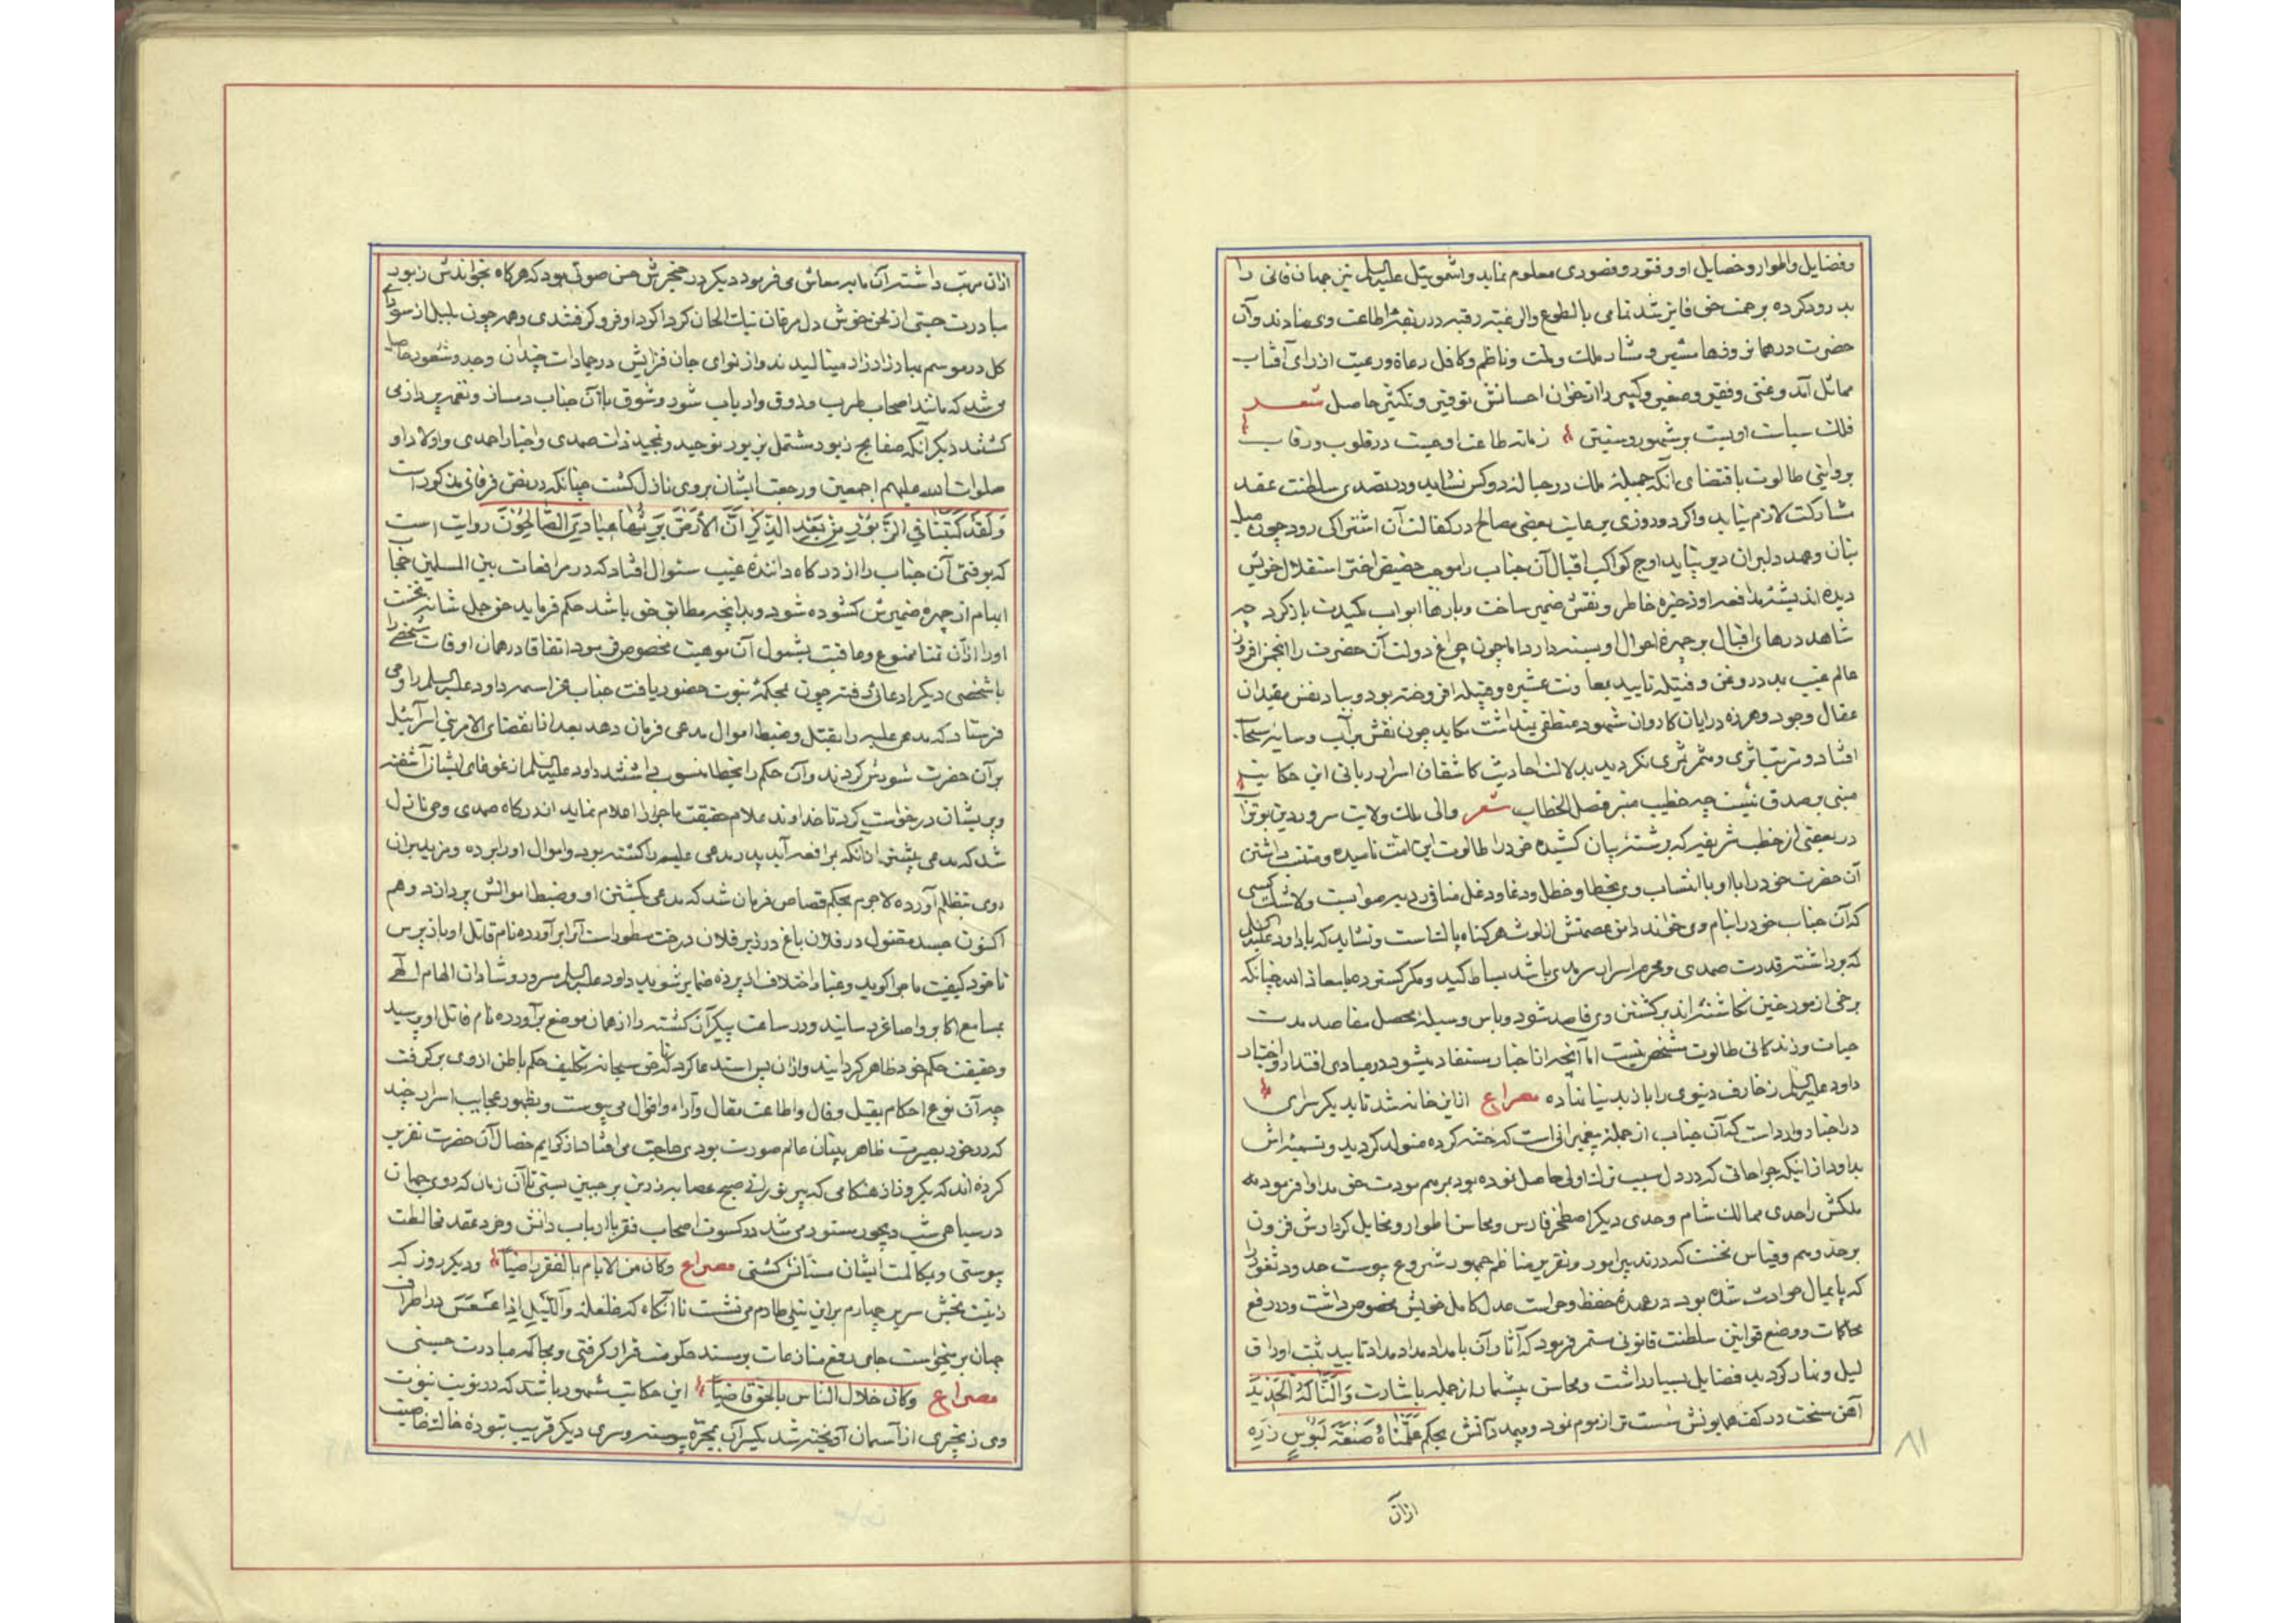 وفضایل واطوار وخصایل او وفتور وقصوری معلوم نماید واشمویئل علیه‌السلم نیز جهان فانی را
بدرود کرده برحمت حق فایز شد تمامی بالطوع والرغبه رقبه در ربقهٔ اطاعت وی نهادند وآن
حضرت در همان روزها مشیر ومشار ملک وملت وناظم وکافل رعاة ورعیت از رای آفتاب
مماثل آمد وغنی وفقیر وصغیر وکبیر را از خوان احسانش توفیر وتکثیر حاصل شعر
فلک سیاست او بست بر شهور وسنین زمانه طاعت او بست در قلوب ورقاب
بروایتی طالوت باقتضای آنکه جمیلهٔ ملک در حبالهٔ دو کس نشاید ودر تصدی سلطنت عقد
مشارکت لازم نیاید واگر دو روزی برعایت بعضی مصالح در کفالت آن اشتراکی رود چون میل
بتان وعهد دلبران دیر نپاید اوج کواکب اقبال آن جناب را موجب حضیض اختر استقلال خویش
دیده اندیشهٔ مدافعه او ذخیره خاطر ونقش ضمیر ساخت وبارها ابواب کیدت باز کرد چه
شاهد درهای اقبال بر چهرهٔ احوال او بسته دارد اما چون چراغ دولت آن حضرت را انجمن افروز
عالم غیب بدر روغن وفتیله تایید بمعاونت عشیره وقبیله افروخته بود وبیاد نفس مقیدان
عقال وجود وهرزه درایان کاروان شهود منطفی نینداشت مکاید چون نقش بر آب وسایه سحاب
افتاد وترتب اثری ومثمر ثمری نگردید بدلالت احادیث کاشفان اسرار ربانی این حکایت
مبنی بر صدق نیست چه خطیب منبر فصل الخطاب شعر والی ملک ولایت سرور دین بوتراب
در بعضی از خطب شریفه که برشتهٔ بیان کشیده خود را طالوت این امت نامیده ومنتسب داشتن
آن حضرت خود را با او با انتساب وی بخطا وخطل ودغا ودغل منافی دیر صوابست ولاشک کسی
که آن جناب خود را بنام وی خواند دامن عصمتش از لوث هر گناه پاکست ونشاید که با داود علیه‌السلم
که برداشتهٔ قدرت صمدی ومحرم اسرار سرمدی باشد بساط کید ومکر گسترده معاذ الله چنانکه
برخی از مورخین نگاشته‌اند بر کشتن وی قاصد شود وباین وسیله محصل مقاصد مدت
حیات وزندگانی طالوت مشخص نیست اما آنچه از اخبار مستفاد میشود در مبادی اقتدار واختیار
داود علیه‌السلم زخارف دنیوی را باز بدنیا نهاده مصراع از این خانه شد تا بدیگر سرای
در اخبار وارد است که آن جناب از جملهٔ پیغمبرانی است که ختنه کرده متولد گردید وتسمیه‌اش
بداود از اینکه جراحاتی که در دل بسبب ترک اولی حاصل نموده بود بمرهم مودت حق مداوا فرمود
ملکش را حدی ممالک شام وحدی دیگر اصطخر فارس ومحاسن اطوار ومخایل کردارش فزون
بر حد وهم وقیاس نخست که در تدبیر امور وتقریر مناظم جمهور شروع پیوست حدود ثغور را
که پایمال حوادث شده بود در عهدهٔ حفظ وحراست عدل کامل خویش مخصوص داشت ودر رفع
محاکمات ووضع قوانین سلطنت قانونی مستمر فرمود که آثار آن بامداد مداد تایید ثبت اوراق
لیل ونهار گردید فضایل بسیار داشت ومحاسن بیشمار از جمله باشارت وَاَلَنّا لَهُ الْحَدیدَ
آهن سخت در کف همایونش سست‌تر از موم نمود وبیمدد آتش بحکم عَلَّمْناهُ صَنْعَةَ لَبُوسٍ زره
ازان
۸۱
ازان مرتب داشته از آن مایه معاش می فرمود دیگر در حنجرش حسن صوتی بود که هرگاه بخواندش زبور
مبادرت جستی از لحن خوش دل مرغان نیک الحان گرداگرد او فرو گرفتندی وهمه چون بلبل از سودای
گل در موسم بهار زار زار مینالیدند واز نوای جان فزایش در جمادات چندان وجد وشعور حاصل
می شد که مانند اصحاب طرب وذوق وارباب شور وشوق با آن جناب دمساز ونغمه پرداز می
گشتند دیگر آنکه صفایح زبور مشتمل بر زیور توحید وتمجید ذات صمدی واخبار احمدی واولاد او
صلوات الله علیهم اجمعین ورجعت ایشان بر وی نازل گشت چنانکه در نص فرقانی مذکور است
وَلَقَدْ کَتَبْنا فی الزَّبُورِ مِنْ بَعْدِ الذِّکْرِ اَنَّ الْاَرْضَ یَرِثُها عِبادِیَ الصّالِحُونَ روایت است
که بوقتی آن جناب را از درگاه دانندهٔ غیب سئوال افتاد که در مرافعات بین المسلمین حجاب
ابهام از چهره ضمیرش گشوده شود وبدانچه مطابق حق باشد حکم فرماید حق جل شانه نخست
او را از آن تمنا ممنوع وعاقبت بشمول آن موهبت مخصوص فرمود اتفاقا در همان اوقات شخصی را
با شخصی دیگر ادعائی رفته چون بمحکمهٔ نبوت حضور یافت جناب عز اسمه داود علیه‌السلم را وحی
فرستاد که مدعی علیه را بقتل وضبط اموال مدعی فرمان دهد بعد از انقضای الامر بنی اسرآئیل
بر آن حضرت شورش کردند وآن حکم را بخطا منسوب داشتند داود علیه‌السلم از غوغای ایشان آشفته
وپریشان درخواست کرد تا خداوند علام حقیقت ماجرا را اعلام نماید از درگاه صمدی وحی نازل
شد که مدعی پیشتر از آنکه بمرافعه آید پدر مدعی علیه را کشته بود واموال او را برده ومزید بر آن
روی بتظلم آورده لاجرم بحکم قصاص فرمان شد که مدعی بکشتن او وضبط اموالش پردازد وهم
اکنون جسد مقتول در فلان باغ در زیر فلان درخت مطور است آنرا برآورده نام قاتل او باز پرس
تا خود کیفیت ماجرا گوید وغبار اختلاف از پرده ضمایر شوید داود علیه‌السلم سرور وشادان الهام الهی
بمسامع اکابر واصاغر رسانید ودر ساعت پیکر آن کشته را از همان موضع برآورده نام قاتل او پرسید
وحقیقت حکم خود ظاهر گردانید واز آن پس استدعا کرد که تا حق سبحانه تکلیف حکم باطن از وی برگرفت
چه آن نوع احکام بقیل وقال واطاعت مقال وآراء واقوال می پیوست وبظهور عجایب اسرار چند
که در خور بصیرت ظاهر بینان عالم صورت بودی حاجت می افتاد از کرایم خصال آن حضرت تقریر
کرده‌اند که یکروز از هنگامی که پیر نورانی صبح عصابه زرین بر جبین بستی تا آن زمان که روی جهان
در سیاهی شب دیجور مستور می شد در کسوت اصحاب فقر با ارباب دانش وخرد عقد مخالطت
پیوستی وبمکالمت ایشان مستأنس گشتی مصراع وکان من الایام بالفقر راضیاً ودیگر روز که
زینت بخش سریر چهارم بر این نیلی طارم می نشست تا آنگاه که طلعهٔ وَاللَّیْلِ اِذا عَسْعَسَ در اطراف
جهان بر میخواست جامی رفع منازعات بر مسند حکومت قرار گرفتی وبمحاکمه مبادرت جستی
مصراع وکان خلال الناس بالحق قاضیاً این حکایت مشهور باشد که در نوبت نبوت
وی زنجیری از آسمان آویخته شد یکسر آن بمجره پیوسته وسری دیگر قریب بتودهٔ خاک خاصیت